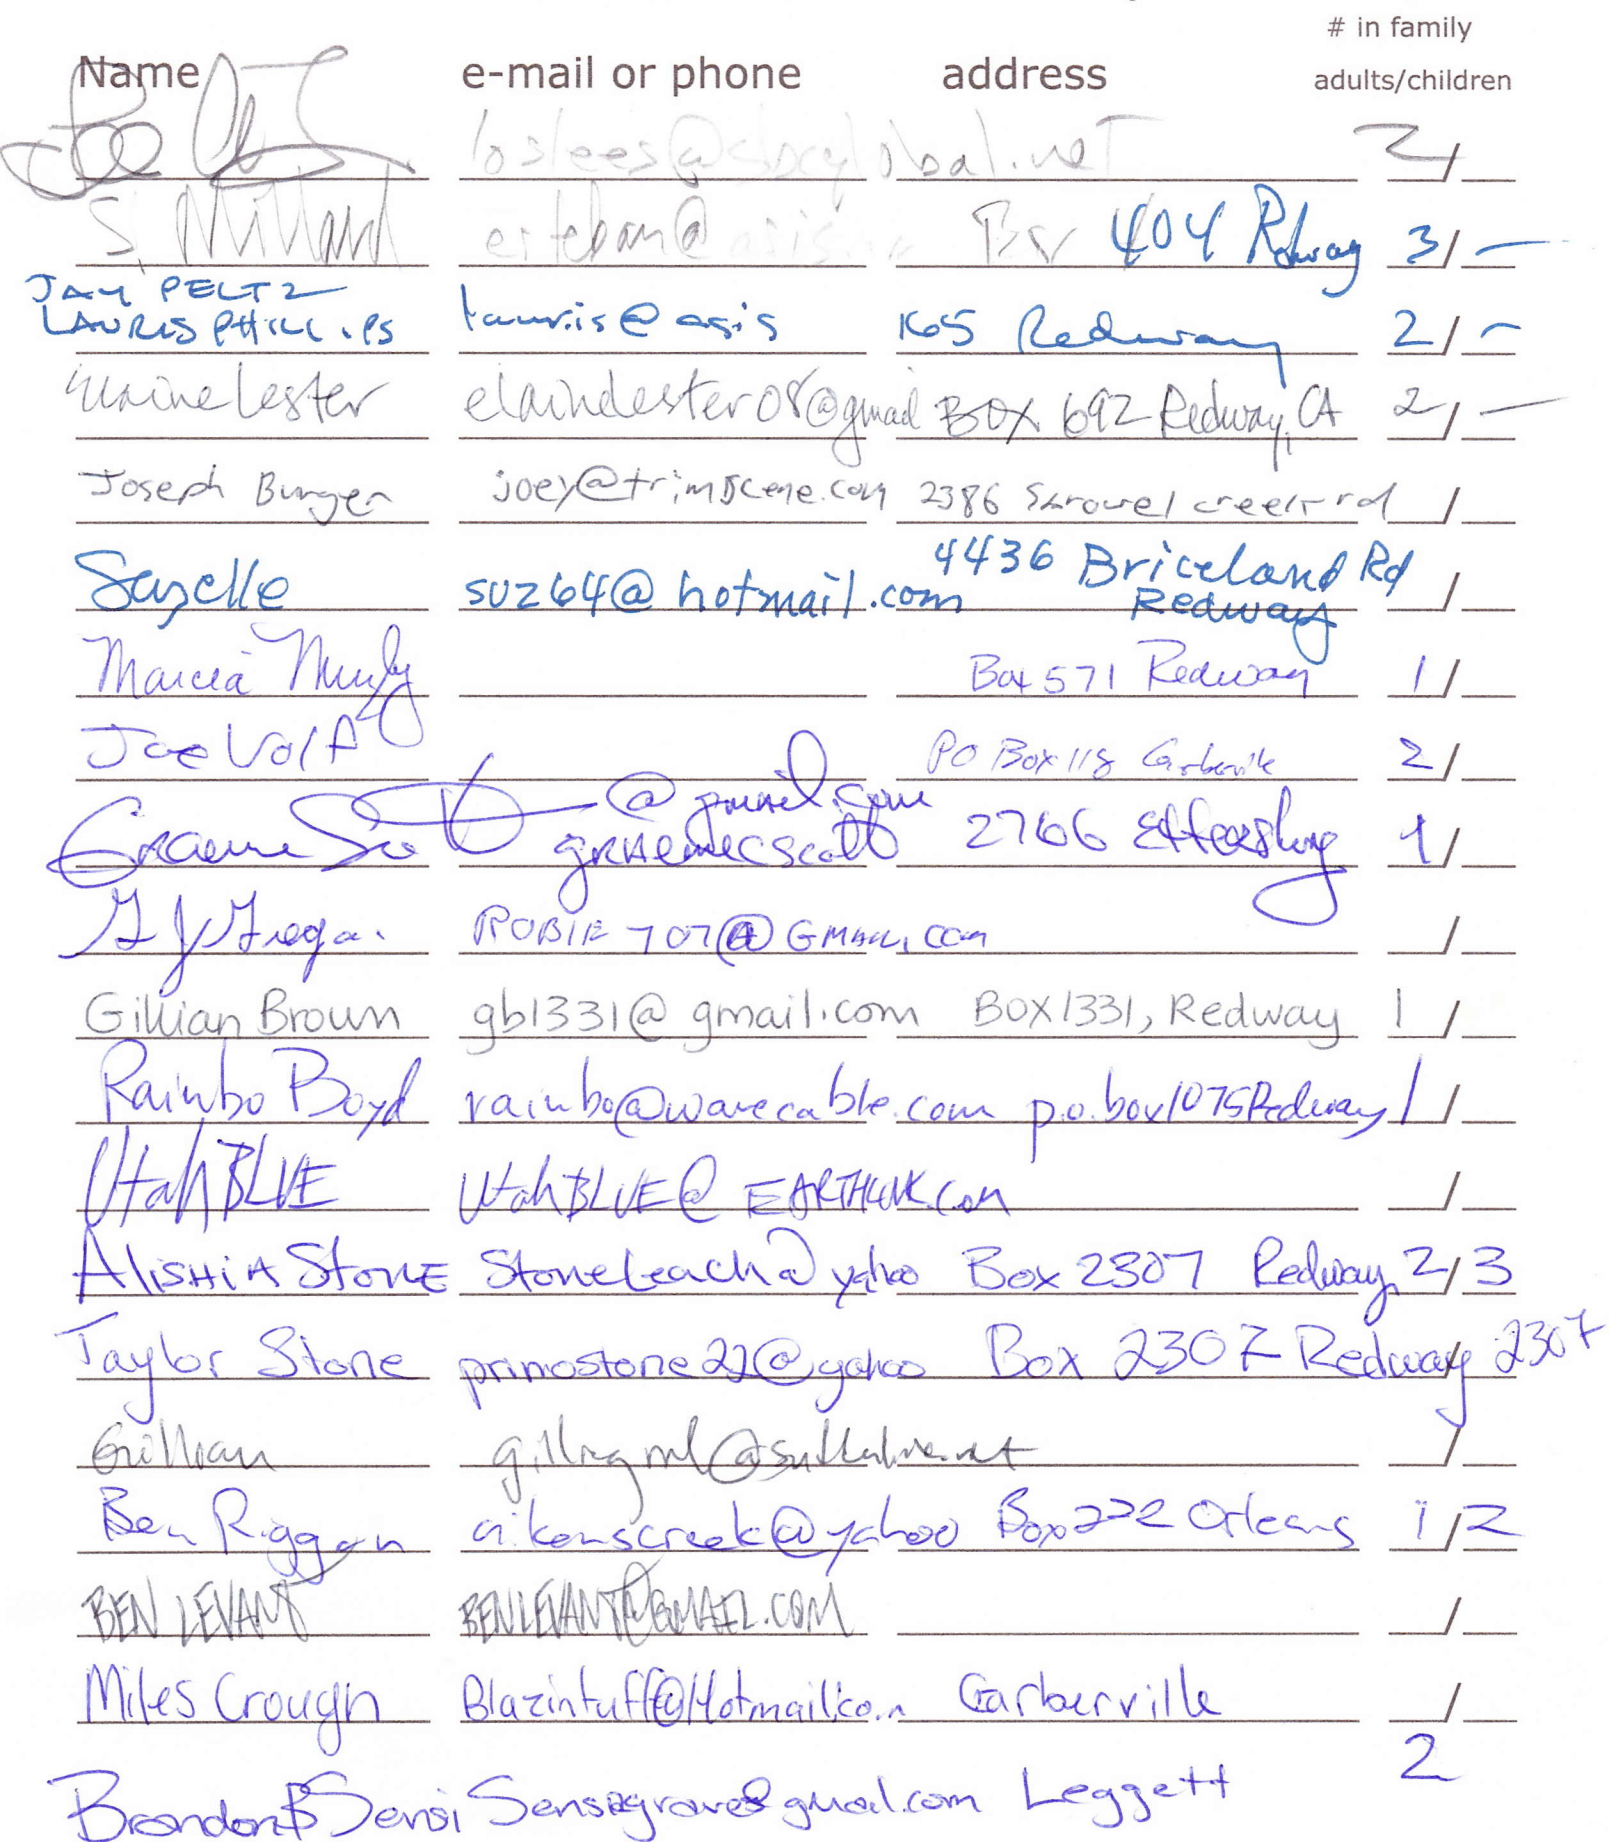 # in family
Name e-mail or phone address adults/children
loslees@sbcglobal.net 2/
S. Millard esteban@asis Box 404 Redway 3/—
JAY PELTZ
LAURIS PHILLIPS lauris@asis 165 Redway 2/-
Elaine Lester elainelester08@gmail BOX 692 Redway, CA 2/—
Joseph Burger joey@trimscene.com 2386 creek rd /
Suzelle suz64@hotmail.com 4436 Briceland Rd
Redway /
Marcia Box 571 Redway 1/
Joe Wolf PO Box 118 Garberville 2/
@gmail.com
Graeme Scott graemecscott 2766 Ettersburg 1/
ROBIE707@GMAIL.COM /
Gillian Brown gb1331@gmail.com BOX 1331, Redway 1/
Rainbo Boyd rainbo@wavecable.com p.o. box 1075 Redway 1/
Utah BLUE UtahBLUE@EARTHLINK.COM /
AlisHiA StonE Stoneleach@yahoo Box 2307 Redway 2/3
Taylor Stone primostone22@yahoo Box 2307 Redway / 2307
Gillian /
Ben Riggan aikenscreek@yahoo Box 222 Orleans 1/2
BEN LEVANT BENLEVANT@GMAIL.COM /
Miles Crough Blazintuff@Hotmail.com Garberville /
2
Brandon Sensi gmail.com Leggett